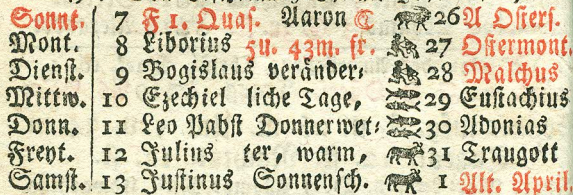 Sonnt. 7 F 1. Quas. Aaron 26 A Osters.
Mont. 8 Liborius 5u. 43m. fr. 27 Ostermont.
Dienst. 9 Bogislaus veränder⸗ 28 Malchus
Mittw. 10 Ezechiel liche Tage, 29 Eustachius
Donn. 11 Leo Pabst Donnerwet⸗ 30 Adonias
Freyt. 12 Julius ter, warm, 31 Traugott
Samst. 13 Justinus Sonnensch. 1 Alt. April